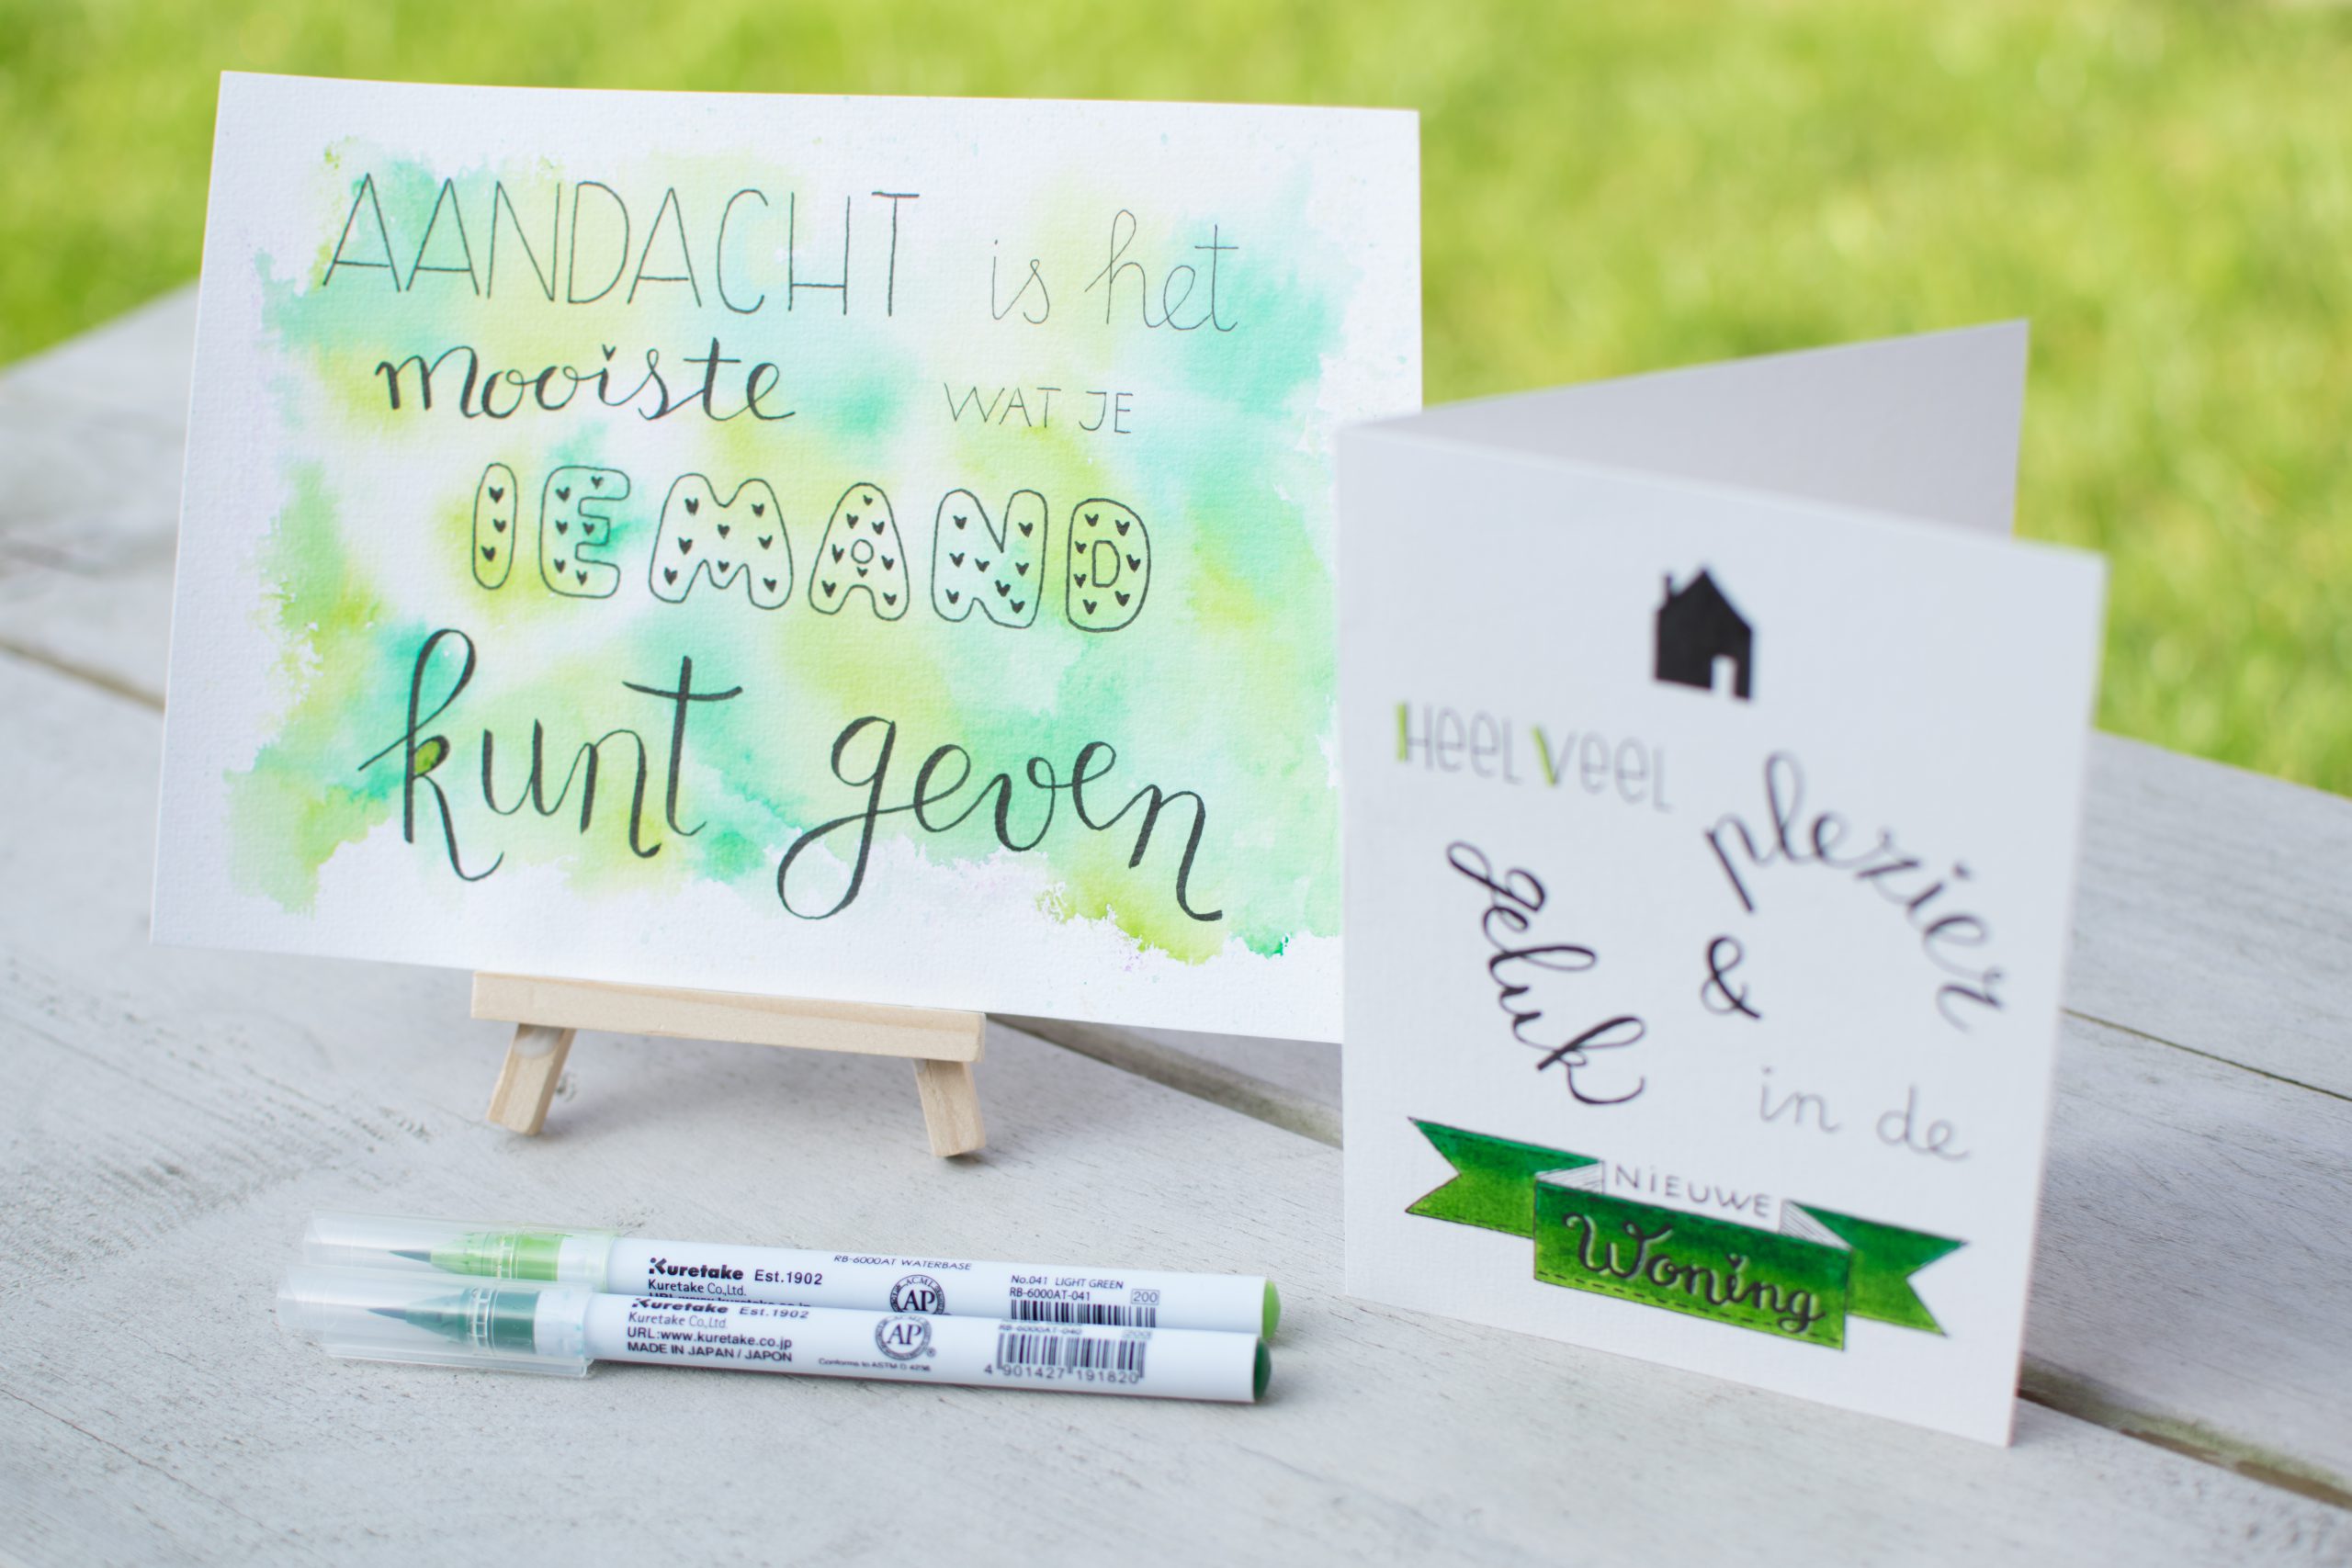 AANDACHT is het
mooiste WAT JE
IEMAND
kunt geven
HEEL VEEL
plezier
&
geluk
in de
NIEUWE
Woning
Kuretake Est.1902
Kuretake Co.,Ltd.
RB-6000AT WATERBASE
AP
No.041 LIGHT GREEN
RB-6000AT-041
200
Kuretake Est.1902
Kuretake Co.,Ltd.
URL:www.kuretake.co.jp
MADE IN JAPAN / JAPON
AP
Conforms to ASTM D 4236
RB-6000AT-040
200
4 901427 191820